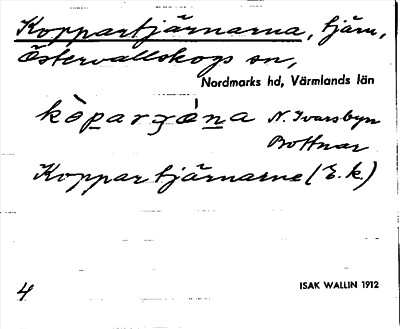 Koppartjärnarna, tjärn,
Östervallskogs sn,
Nordmarks hd, Värmlands län
N. Ivarsbyn
Bottnar
Koppartjärnarne (E.k.)
4
ISAK WALLIN 1912